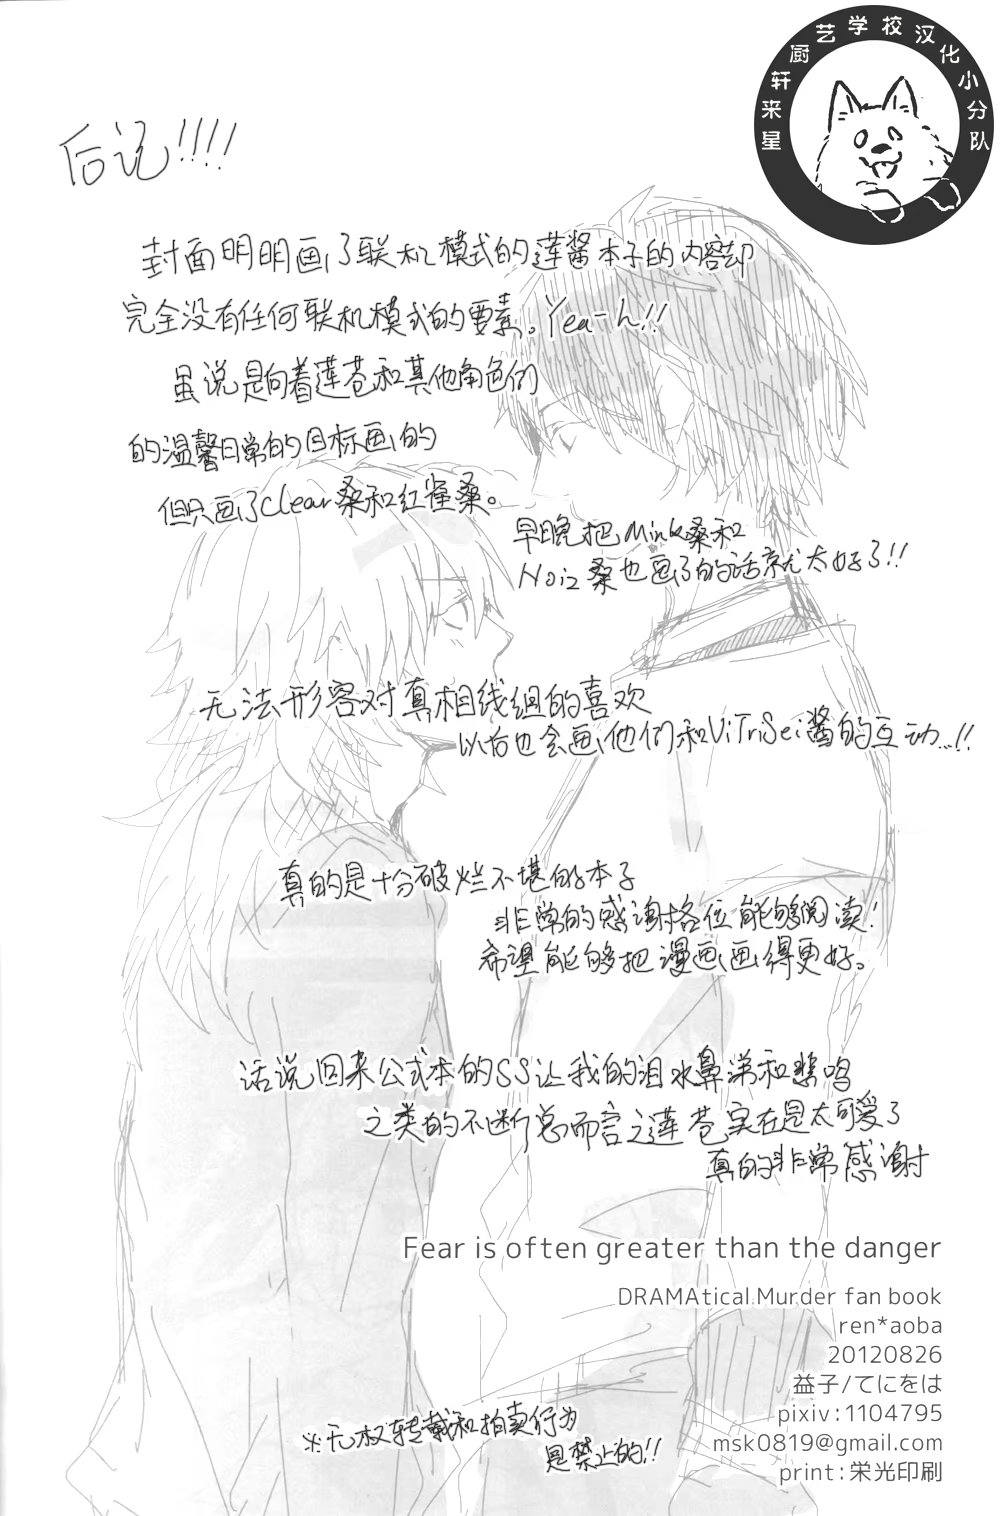 星来轩厨艺学校汉化小分队
后记!!!!
封面明明画了联机模式的莲酱本子的内容却
完全没有任何联机模式的要素。Yea-h!!
虽说是向着莲苍和其他角色们
的温馨日常的目标画的
但只画了Clear桑和红雀桑。
早晚把Mink桑和
Noiz桑也画了的话就太好了!!
无法形容对真相线组的喜欢
以后也会画他们和ViTriSei酱的互动...!!
真的是十分破烂不堪的本子
非常的感谢各位能够阅读!
希望能够把漫画画得更好。
话说回来公式本的SS让我的泪水鼻涕和悲鸣
之类的不断总而言之莲苍实在是太可爱了
真的非常感谢
Fear is often greater than the danger
DRAMAtical Murder fan book
ren*aoba
20120826
益子/てにをは
pixiv:1104795
msk0819@gmail.com
print:栄光印刷
※无权转载和拍卖行为
是禁止的!!